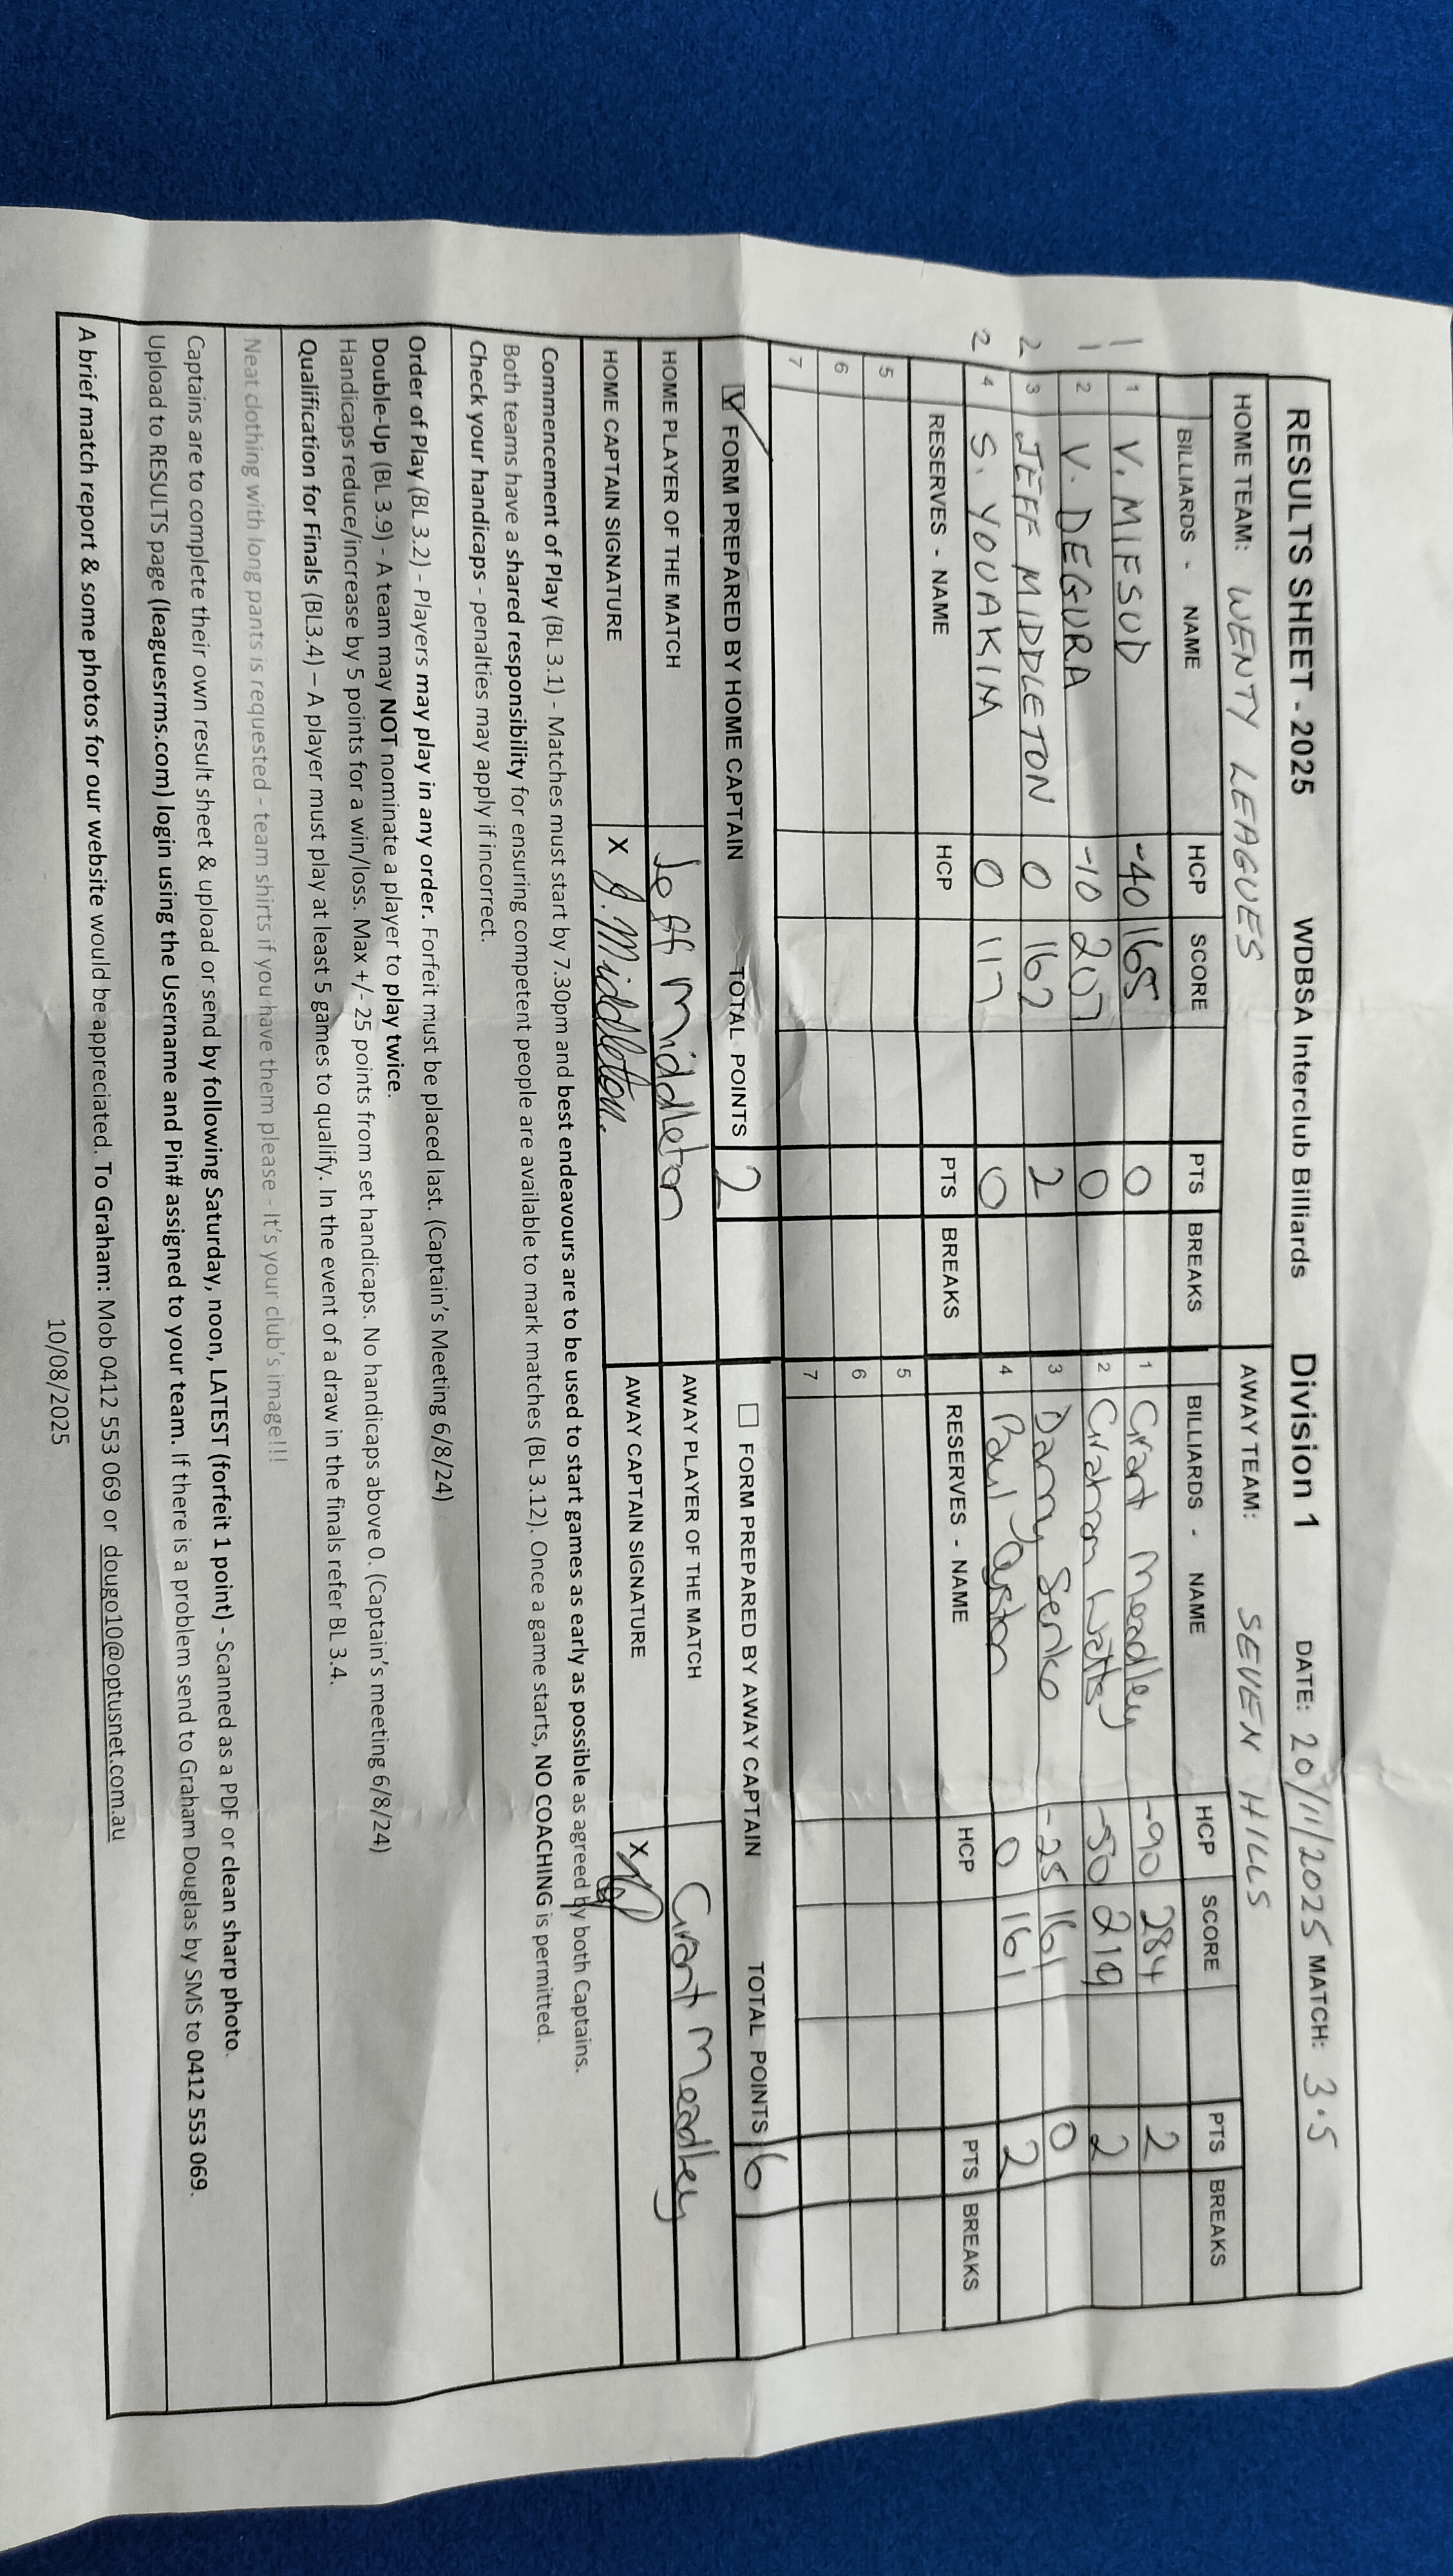 RESULTS SHEET - 2025 WDBSA Interclub Billiards Division 1 DATE: 20/11/2025 MATCH: 3.5
HOME TEAM: WENTY LEAGUES AWAY TEAM: SEVEN HILLS
BILLIARDS - NAME HCP SCORE PTS BREAKS BILLIARDS - NAME HCP SCORE PTS BREAKS
1 1 V. MIFSUD -40 165 0 1 Grant Meadley -90 284 2
1 2 V. DEGURA -10 207 0 2 Graham Watts -50 219 2
2 3 JEFF MIDDLETON 0 162 2 3 Danny Senko -25 161 0
2 4 S. YOUAKIM 0 117 0 4 Paul 0 161 2
RESERVES - NAME HCP PTS BREAKS RESERVES - NAME HCP PTS BREAKS
5 5
6 6
7 7
FORM PREPARED BY HOME CAPTAIN TOTAL POINTS 2 FORM PREPARED BY AWAY CAPTAIN TOTAL POINTS 6
HOME PLAYER OF THE MATCH Jeff Middleton AWAY PLAYER OF THE MATCH Grant Meadley
HOME CAPTAIN SIGNATURE X J. Middleton. AWAY CAPTAIN SIGNATURE X
Commencement of Play (BL 3.1) - Matches must start by 7.30pm and best endeavours are to be used to start games as early as possible as agreed by both Captains.
Both teams have a shared responsibility for ensuring competent people are available to mark matches (BL 3.12). Once a game starts, NO COACHING is permitted.
Check your handicaps - penalties may apply if incorrect.
Order of Play (BL 3.2) - Players may play in any order. Forfeit must be placed last. (Captain's Meeting 6/8/24)
Double-Up (BL 3.9) - A team may NOT nominate a player to play twice.
Handicaps reduce/increase by 5 points for a win/loss. Max +/- 25 points from set handicaps. No handicaps above 0. (Captain's meeting 6/8/24)
Qualification for Finals (BL3.4) – A player must play at least 5 games to qualify. In the event of a draw in the finals refer BL 3.4.
Neat clothing with long pants is requested - team shirts if you have them please - It's your club's image!!!
Captains are to complete their own result sheet & upload or send by following Saturday, noon, LATEST (forfeit 1 point) - Scanned as a PDF or clean sharp photo.
Upload to RESULTS page (leaguesrms.com) login using the Username and Pin# assigned to your team. If there is a problem send to Graham Douglas by SMS to 0412 553 069.
A brief match report & some photos for our website would be appreciated. To Graham: Mob 0412 553 069 or dougo10@optusnet.com.au
10/08/2025